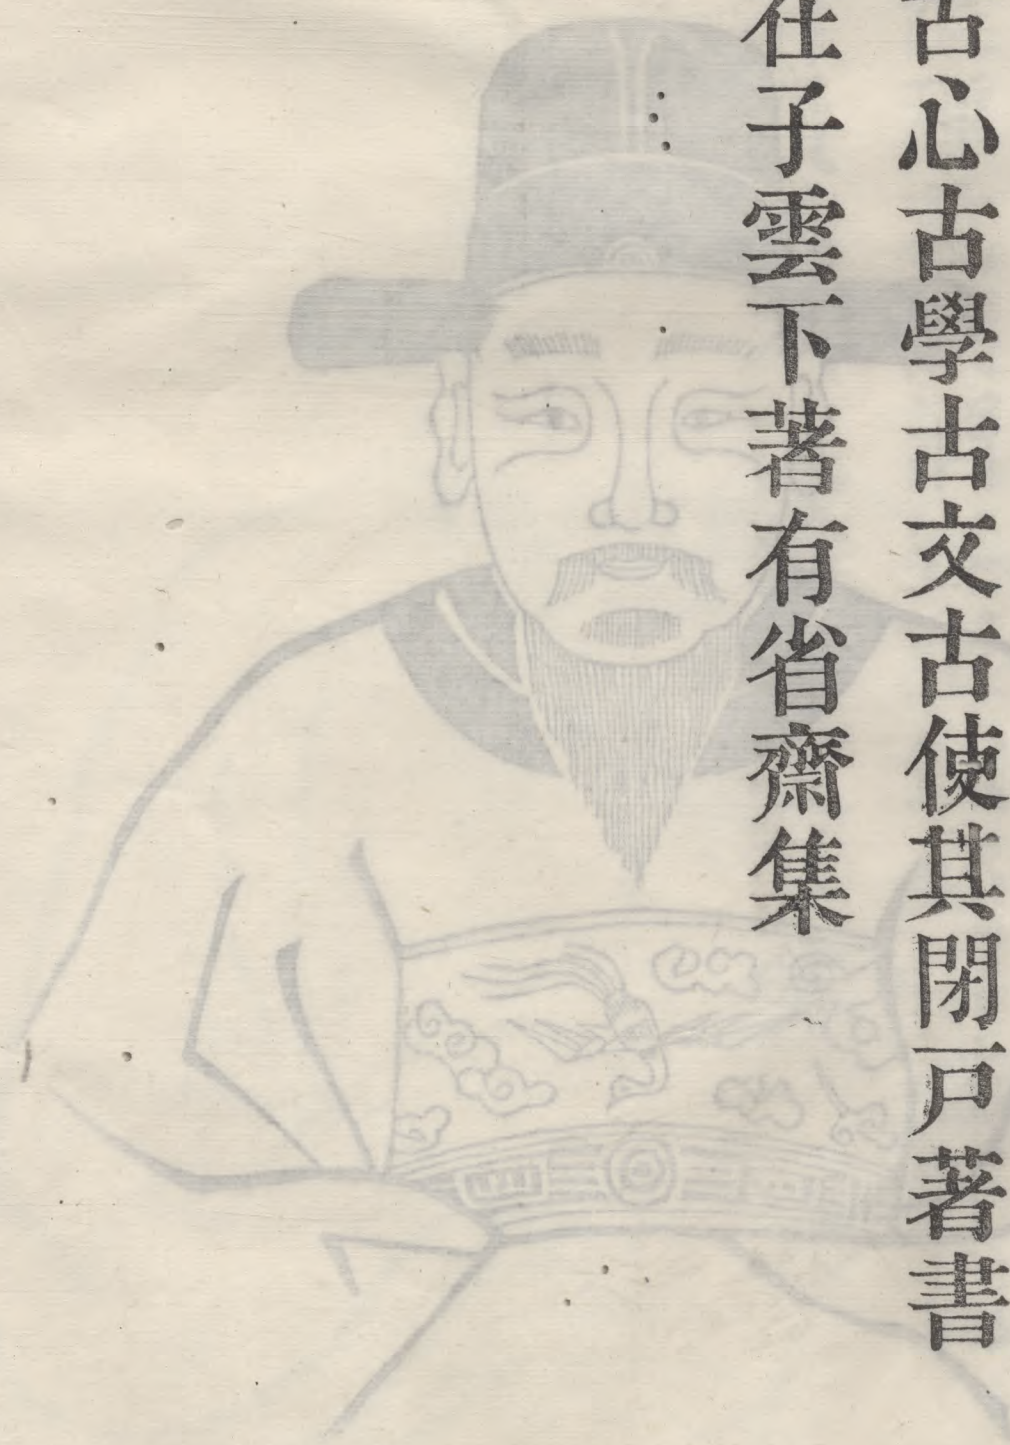 古心古學古文古使其閉戸著書
在子雲下著有省齋集